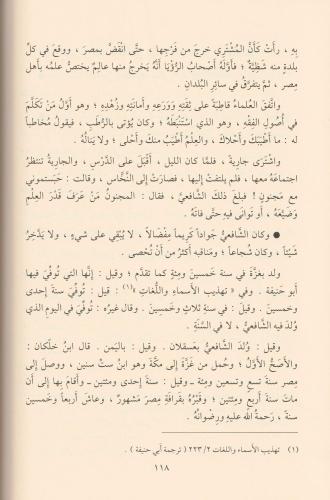 بِهِ ، رأت كَأَنَّ المُشْتَرِي خرجَ من فَرْجِها ، حتَّى انْقَضَّ بمصرَ ، ووقع في كلِّ
بلدةٍ منه شَظِيَّةٌ ؛ فأوَّلَهُ أصْحابُ الرُّؤْيَا أنَّهُ يَخرجُ منها عالِمٌ يَختصُّ علمُه بأهلِ
مِصرَ ، ثمَّ يتفرَّقُ في سائِرِ البُلدانِ .
واتَّفقَ العُلماءُ قاطِبَةً على ثِقَتِهِ وَوَرعِهِ وأمانَتِهِ وزُهْدِهِ ؛ وهو أَوَّلُ مَنْ تَكَلَّمَ
في أُصُولِ الفِقْهِ ، وهو الذي اسْتَنْبَطَهُ ؛ وكان يُؤتى بالرُّطَبِ ، فيقولُ مُخاطِباً
له : ما أَطْيَبَكَ وأَحْلاكَ ، والعِلْمُ أَطْيَبُ منكَ وأَحْلى ؛ ولا يَنالُهُ .
واشْتَرى جاريةً ، فلمَّا كان الليل ، أَقْبَلَ على الدَّرْسِ ، والجاريةُ تنتظرُ
اجتماعَهُ معها ، فلم يلتفت إليها ، فصارَتْ إلى النَّخَّاس ، وقالت : حَبَستموني
مع مَجنونٍ ! فبلغَ ذلكَ الشَّافعيَّ ، فقال : المجنونُ مَنْ عرَفَ قَدرَ العِلْمِ
وضَيَّعَهُ ، أو توانَى فيهِ حتَّى فاتَهُ .
● وكان الشَّافعيُّ جَواداً كَرِيماً مِفْضَالاً ، لا يُبْقِي على شيءٍ ، ولا يَدَّخِرُ
شيئاً ، وكان شُجاعاً ؛ ومناقبه أكثر مِنْ أَنْ تُحْصى .
ولد بغزَّةَ في سنة خَمسينَ ومئةٍ كما تقدَّم ؛ وقيل : إنَّها التي تُوفِّيَ فيها
أبو حَنيفة . وفي « تهذيبِ الأَسماءِ واللُّغاتِ »(١) : وقيل : تُوفِّيَ سنةَ إحدى
وخمسينَ . وقيل : في سنةِ ثلاثٍ وخَمسينَ . وقال غيرُه : تُوفِّيَ في اليومِ الذي
وُلدَ فيه الشَّافعيُّ ، لا في السَّنةِ .
وقيل : وُلدَ الشَّافعيُّ بعَسقلانَ . وقيل : باليَمنِ . قال ابنُ خلِّكان :
والأَصَحُّ الأَوَّلُ ؛ وحُمل من غَزَّةَ إلى مكَّةَ وهو ابنُ ستِّ سنين ، ووصلَ إلى
مِصرَ سنةَ تسعٍ وتسعينَ ومئة ـ وقيل : سنةَ إحدى ومئتين ـ وأَقامَ بِها إلى أن
ماتَ سنةَ أَربعٍ ومئتينِ ؛ وقَبْرُهُ بقَرافةِ مِصرَ مَشهورٌ ، وعاش أَربعاً وخمسينَ
سنةً ، رَحمةُ الله عليهِ ورِضْوانُهُ .
(١) تهذيب الأسماء واللغات ٢/ ٢٢٣ ( ترجمة أبي حنيفة ) .
١١٨